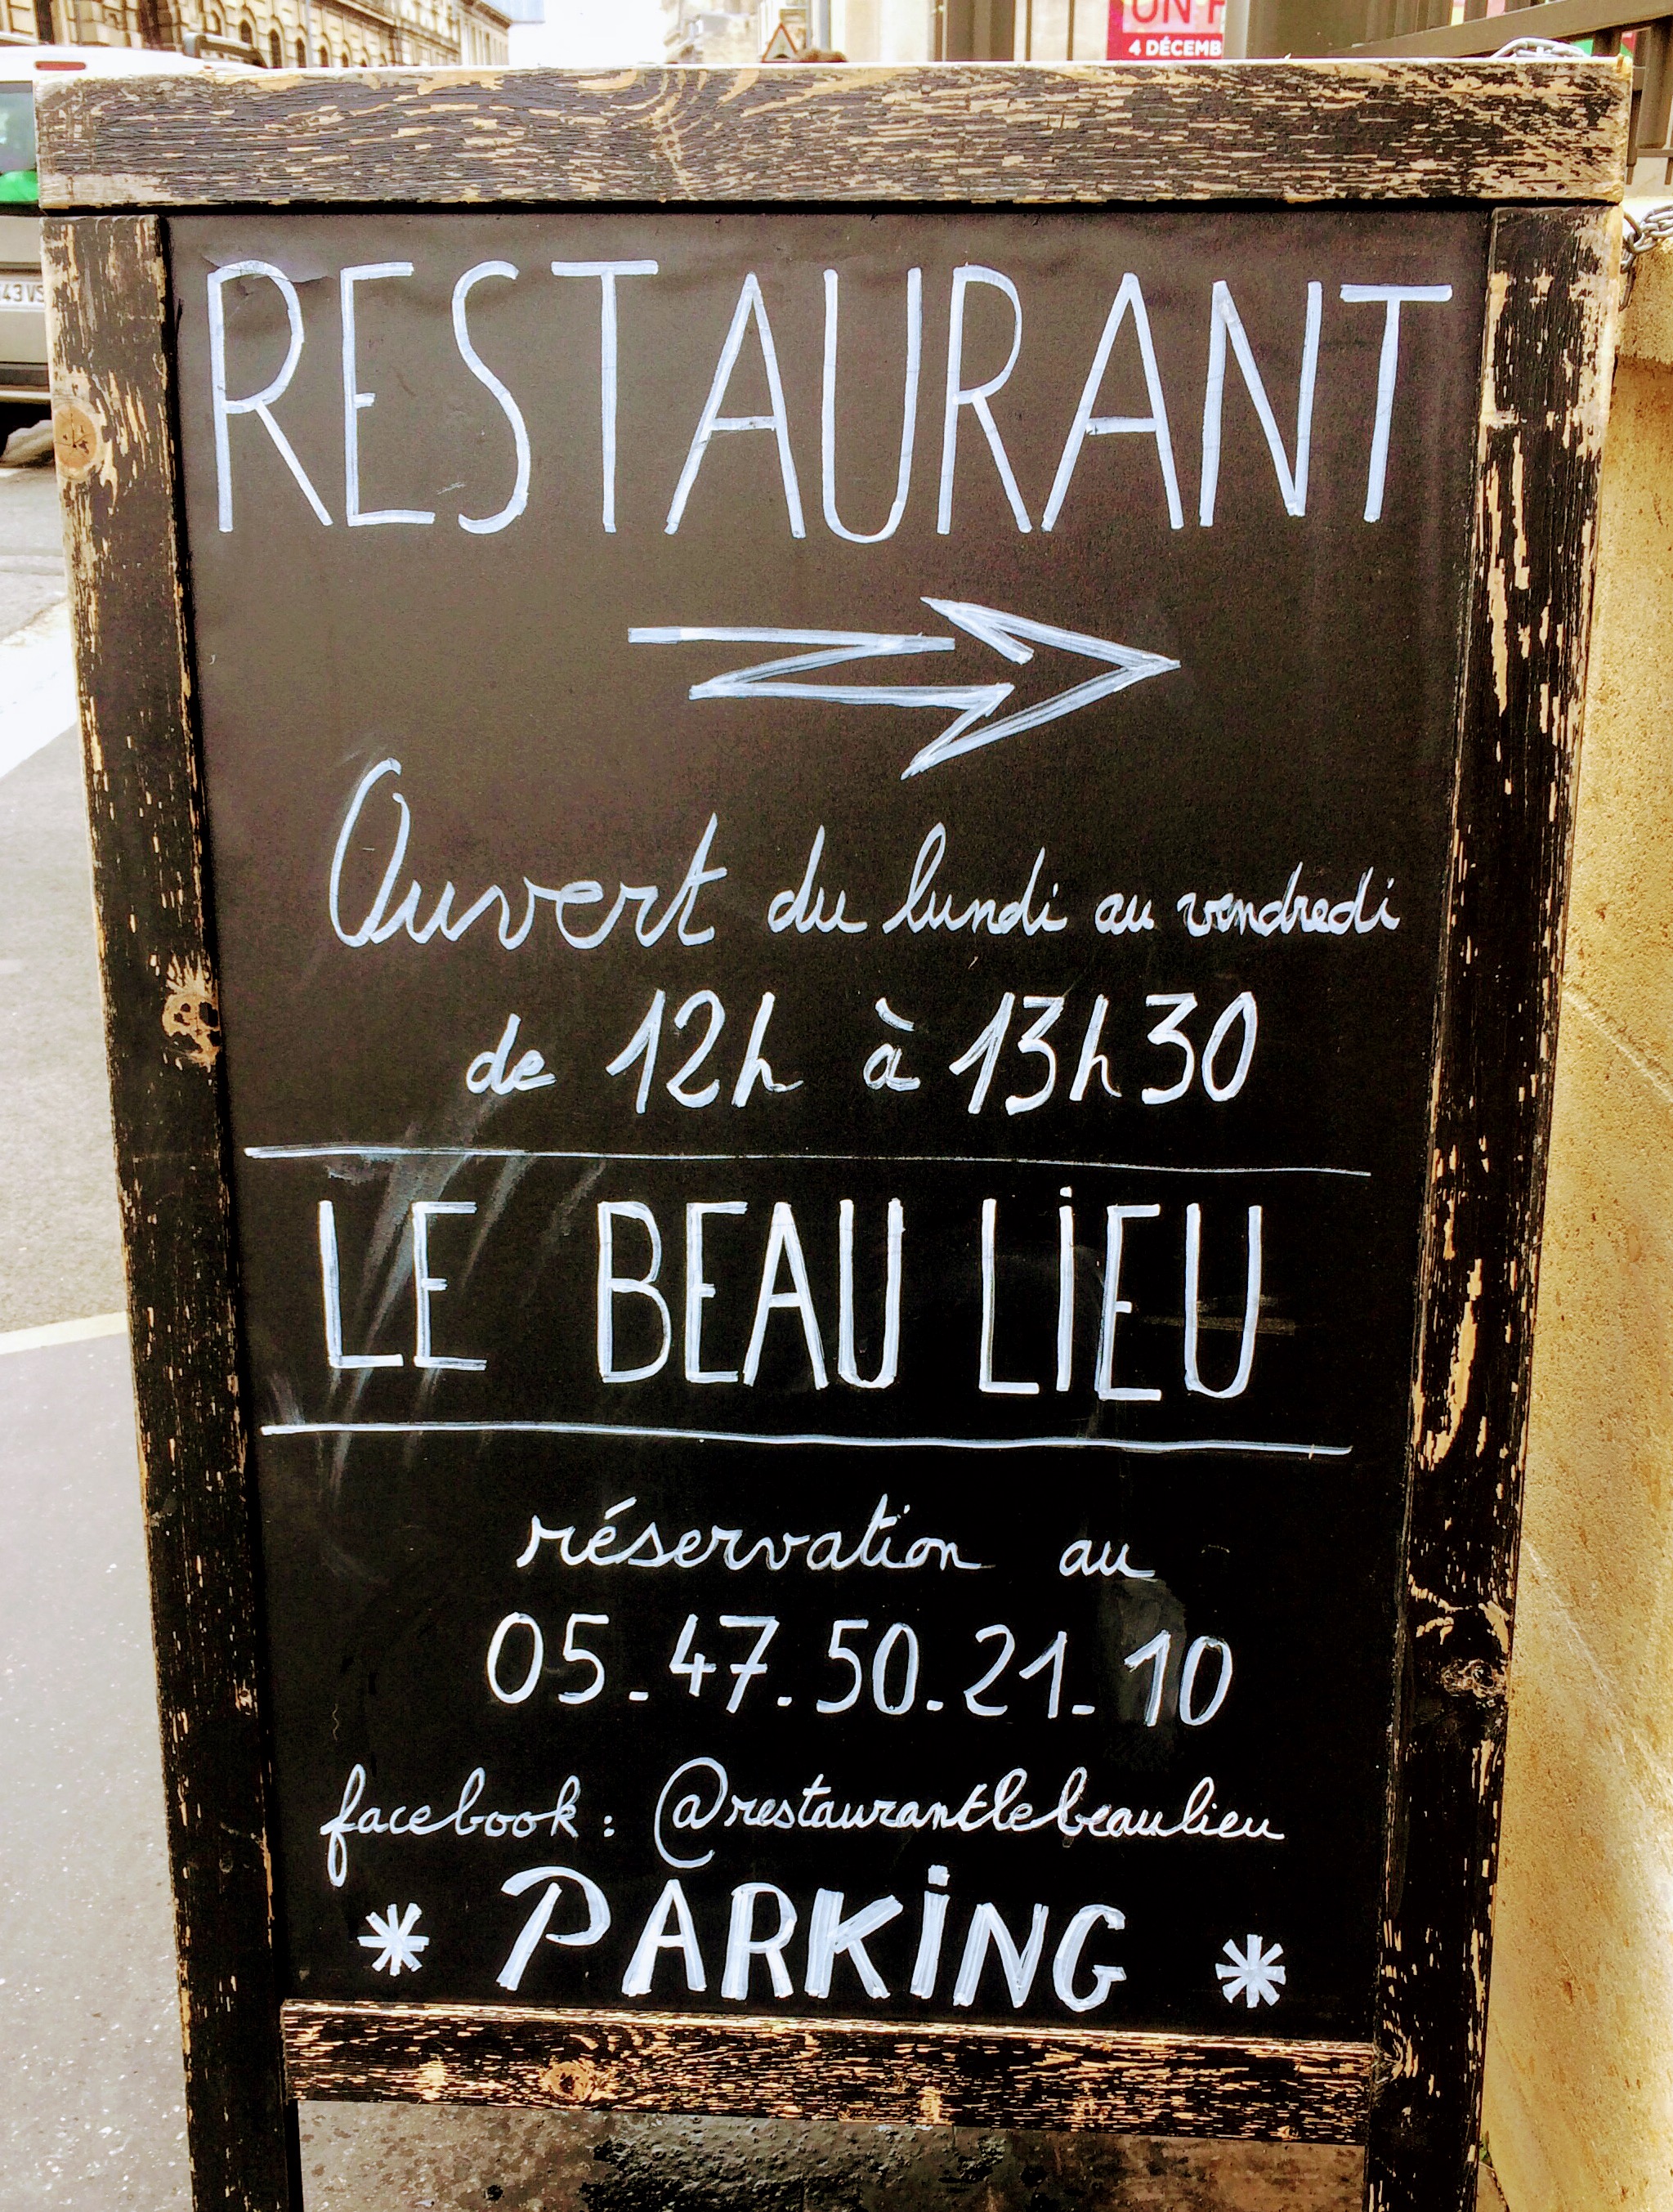 UN F
4 DÉCEMB
43 VS
RESTAURANT
Ouvert du lundi au vendredi
de 12h à 13h30
LE BEAU LiEU
réservation au
05.47.50.21.10
facebook : @restaurantlebeaulieu
* PARKiNG *